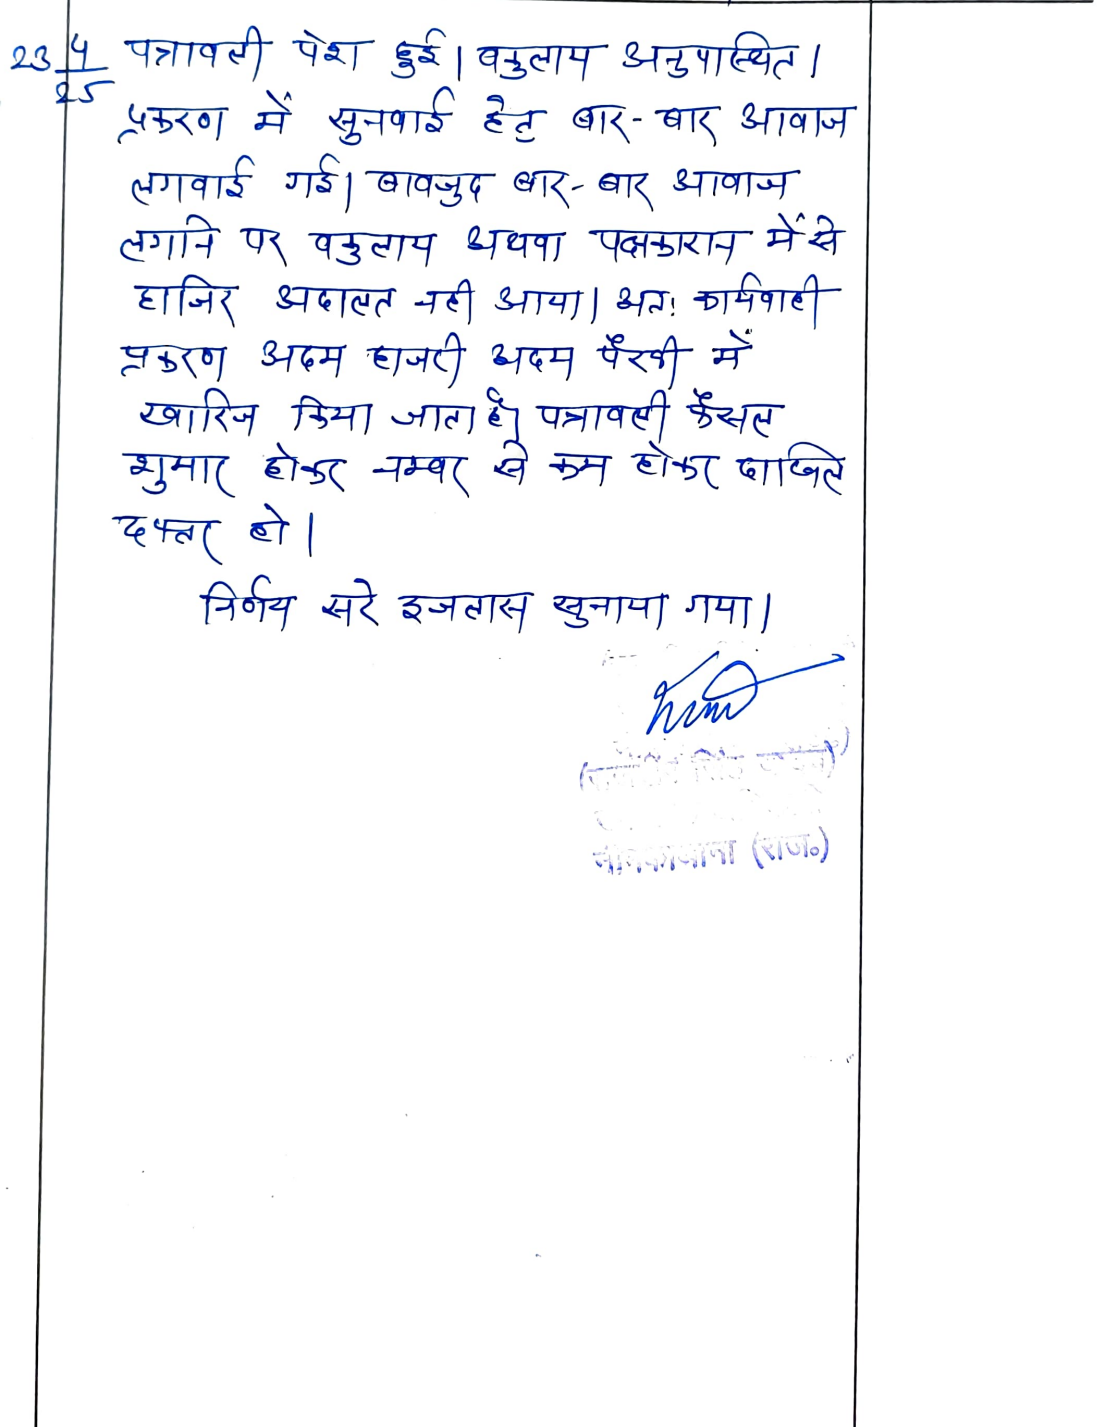 23 4/25 पत्रावली पेश हुई। वकुलाय अनुपस्थित।
प्रकरण में सुनवाई हेतु बार-बार आवाज
लगवाई गई। बावजुद बार-बार आवाज
लगाने पर वकुलाय अथवा पक्षकारान में से
हाजिर अदालत नही आया। अतः कार्यवाही
प्रकरण अदम हाजरी अदम पैरवी में
खारिज किया जाता है। पत्रावली फैसल
शुमार होकर नम्बर से कम होकर दाखिले
दफ्तर हो।
निर्णय सरे इजलास सुनाया गया।
नीमकाथाना (राज०)